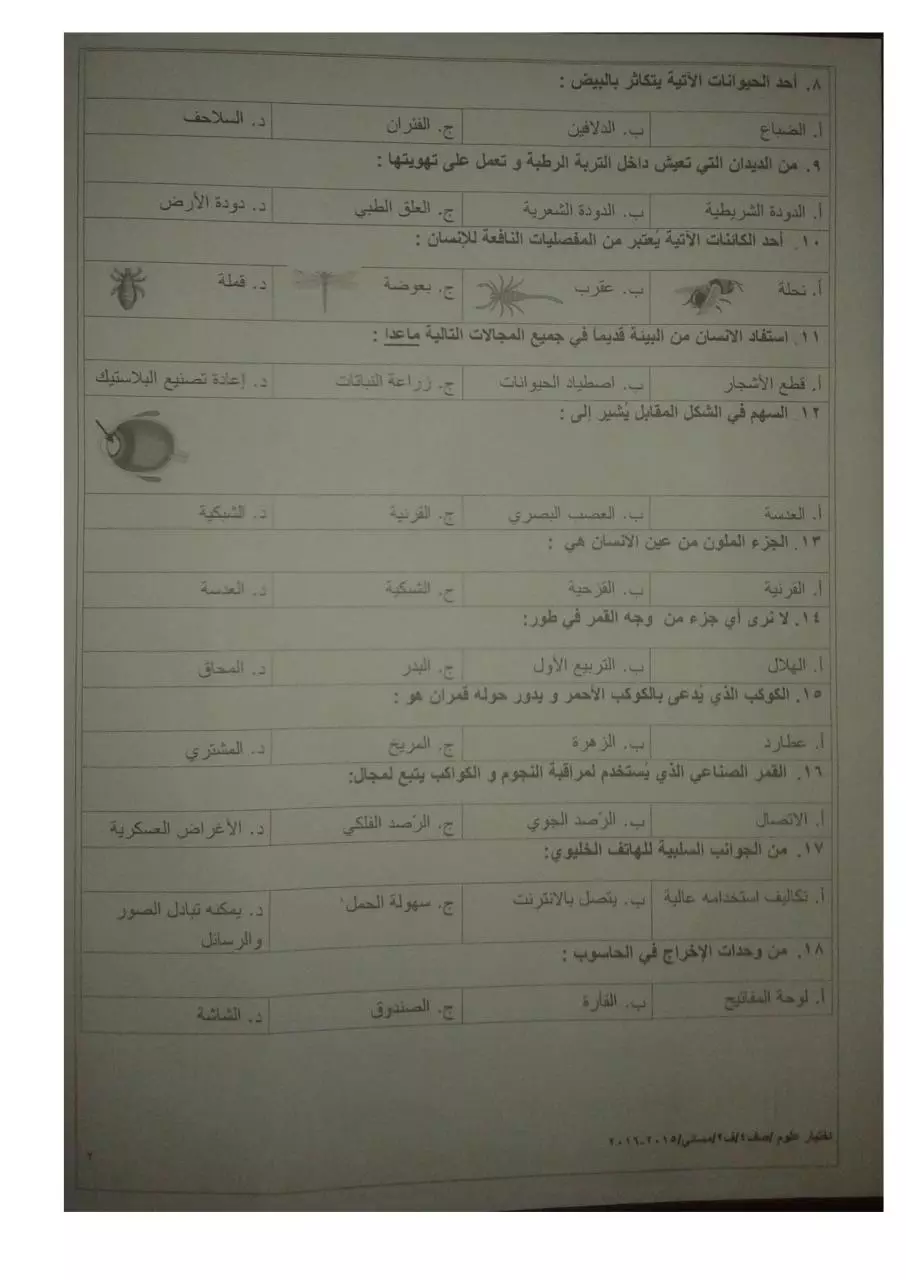 ٨. أحد الحيوانات الآتية يتكاثر بالبيض :
أ. الضباع ب. الدلافين ج. الفئران د. السلاحف
٩. من الديدان التي تعيش داخل التربة الرطبة و تعمل على تهويتها :
أ. الدودة الشريطية ب. الدودة الشعرية ج. العلق الطبي د. دودة الأرض
١٠. أحد الكائنات الآتية يُعتبر من المفصليات النافعة للإنسان :
أ. نحلة ب. عقرب ج. بعوضة د. قملة
١١. استفاد الانسان من البيئة قديماً في جميع المجالات التالية ماعدا :
أ. قطع الأشجار ب. اصطياد الحيوانات ج. زراعة النباتات د. إعادة تصنيع البلاستيك
١٢. السهم في الشكل المقابل يُشير إلى :
أ. العدسة ب. العصب البصري ج. القرنية د. الشبكية
١٣. الجزء الملون من عين الانسان هي :
أ. القرنية ب. القزحية ج. الشبكية د. العدسة
١٤. لا نرى أي جزء من وجه القمر في طور:
أ. الهلال ب. التربيع الأول ج. البدر د. المحاق
١٥. الكوكب الذي يُدعى بالكوكب الأحمر و يدور حوله قمران هو :
أ. عطارد ب. الزهرة ج. المريخ د. المشتري
١٦. القمر الصناعي الذي يُستخدم لمراقبة النجوم و الكواكب يتبع لمجال:
أ. الاتصال ب. الرّصد الجوي ج. الرّصد الفلكي د. الأغراض العسكرية
١٧. من الجوانب السلبية للهاتف الخليوي:
أ. تكاليف استخدامه عالية ب. يتصل بالانترنت ج. سهولة الحمل د. يمكنه تبادل الصور
والرسائل
١٨. من وحدات الإخراج في الحاسوب :
أ. لوحة المفاتيح ب. الفأرة ج. الصندوق د. الشاشة
اختبار علوم /صف٤/ف٢/مسائي/٢٠١٥-٢٠١٦
٢